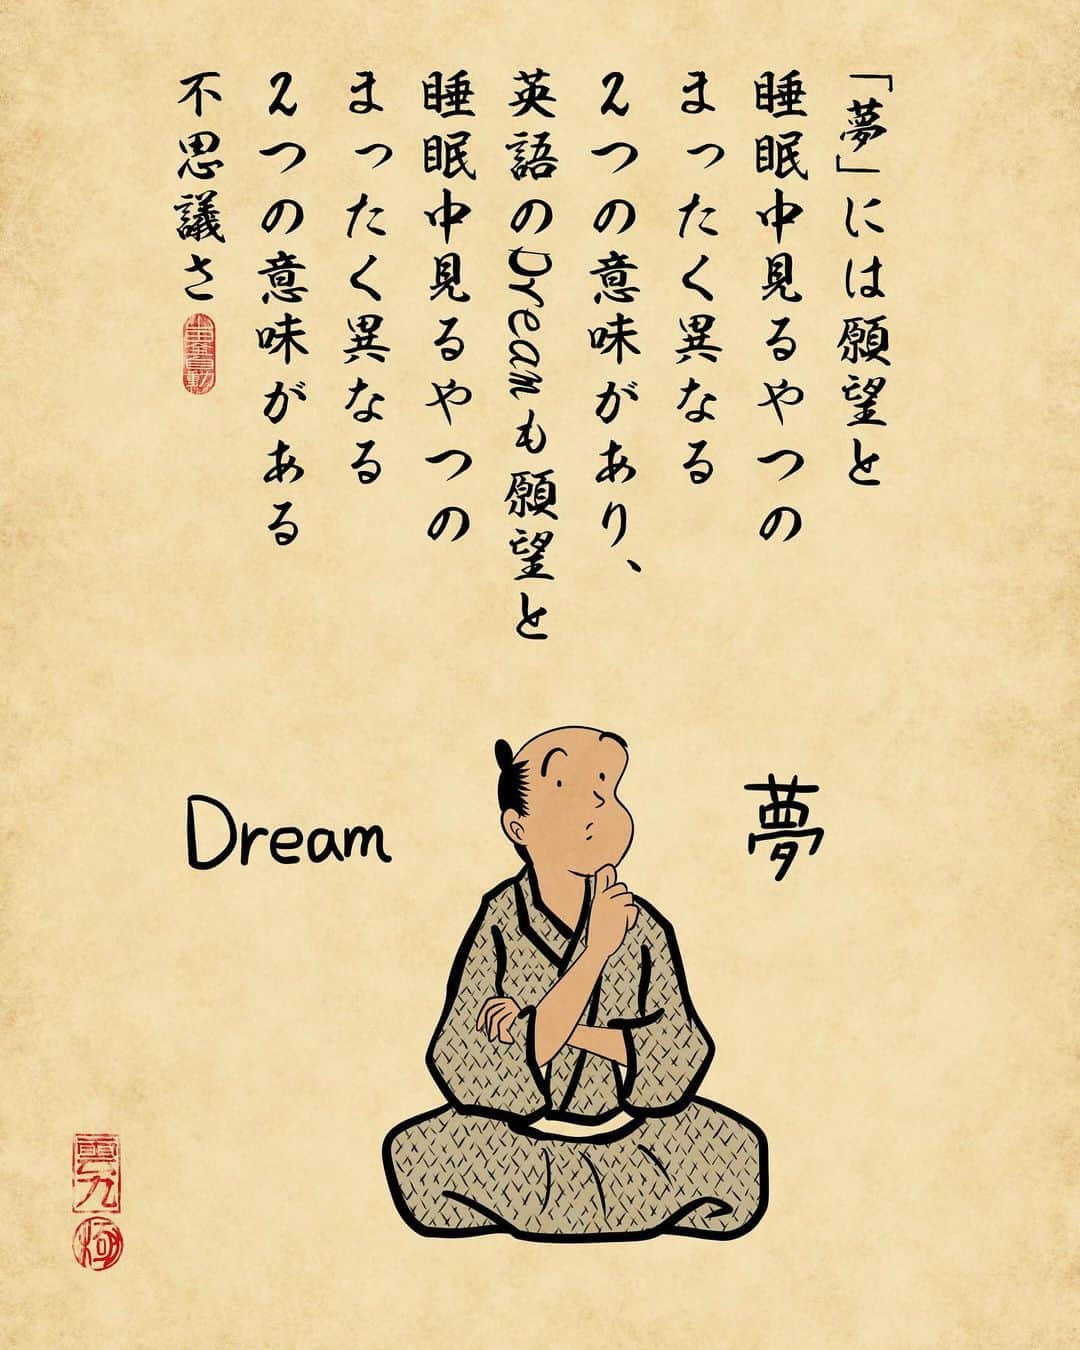 「夢」には願望と
睡眠中見るやつの
まったく異なる
2つの意味があり、
英語のDreamも願望と
睡眠中見るやつの
まったく異なる
2つの意味がある
不思議さ
夢
Dream